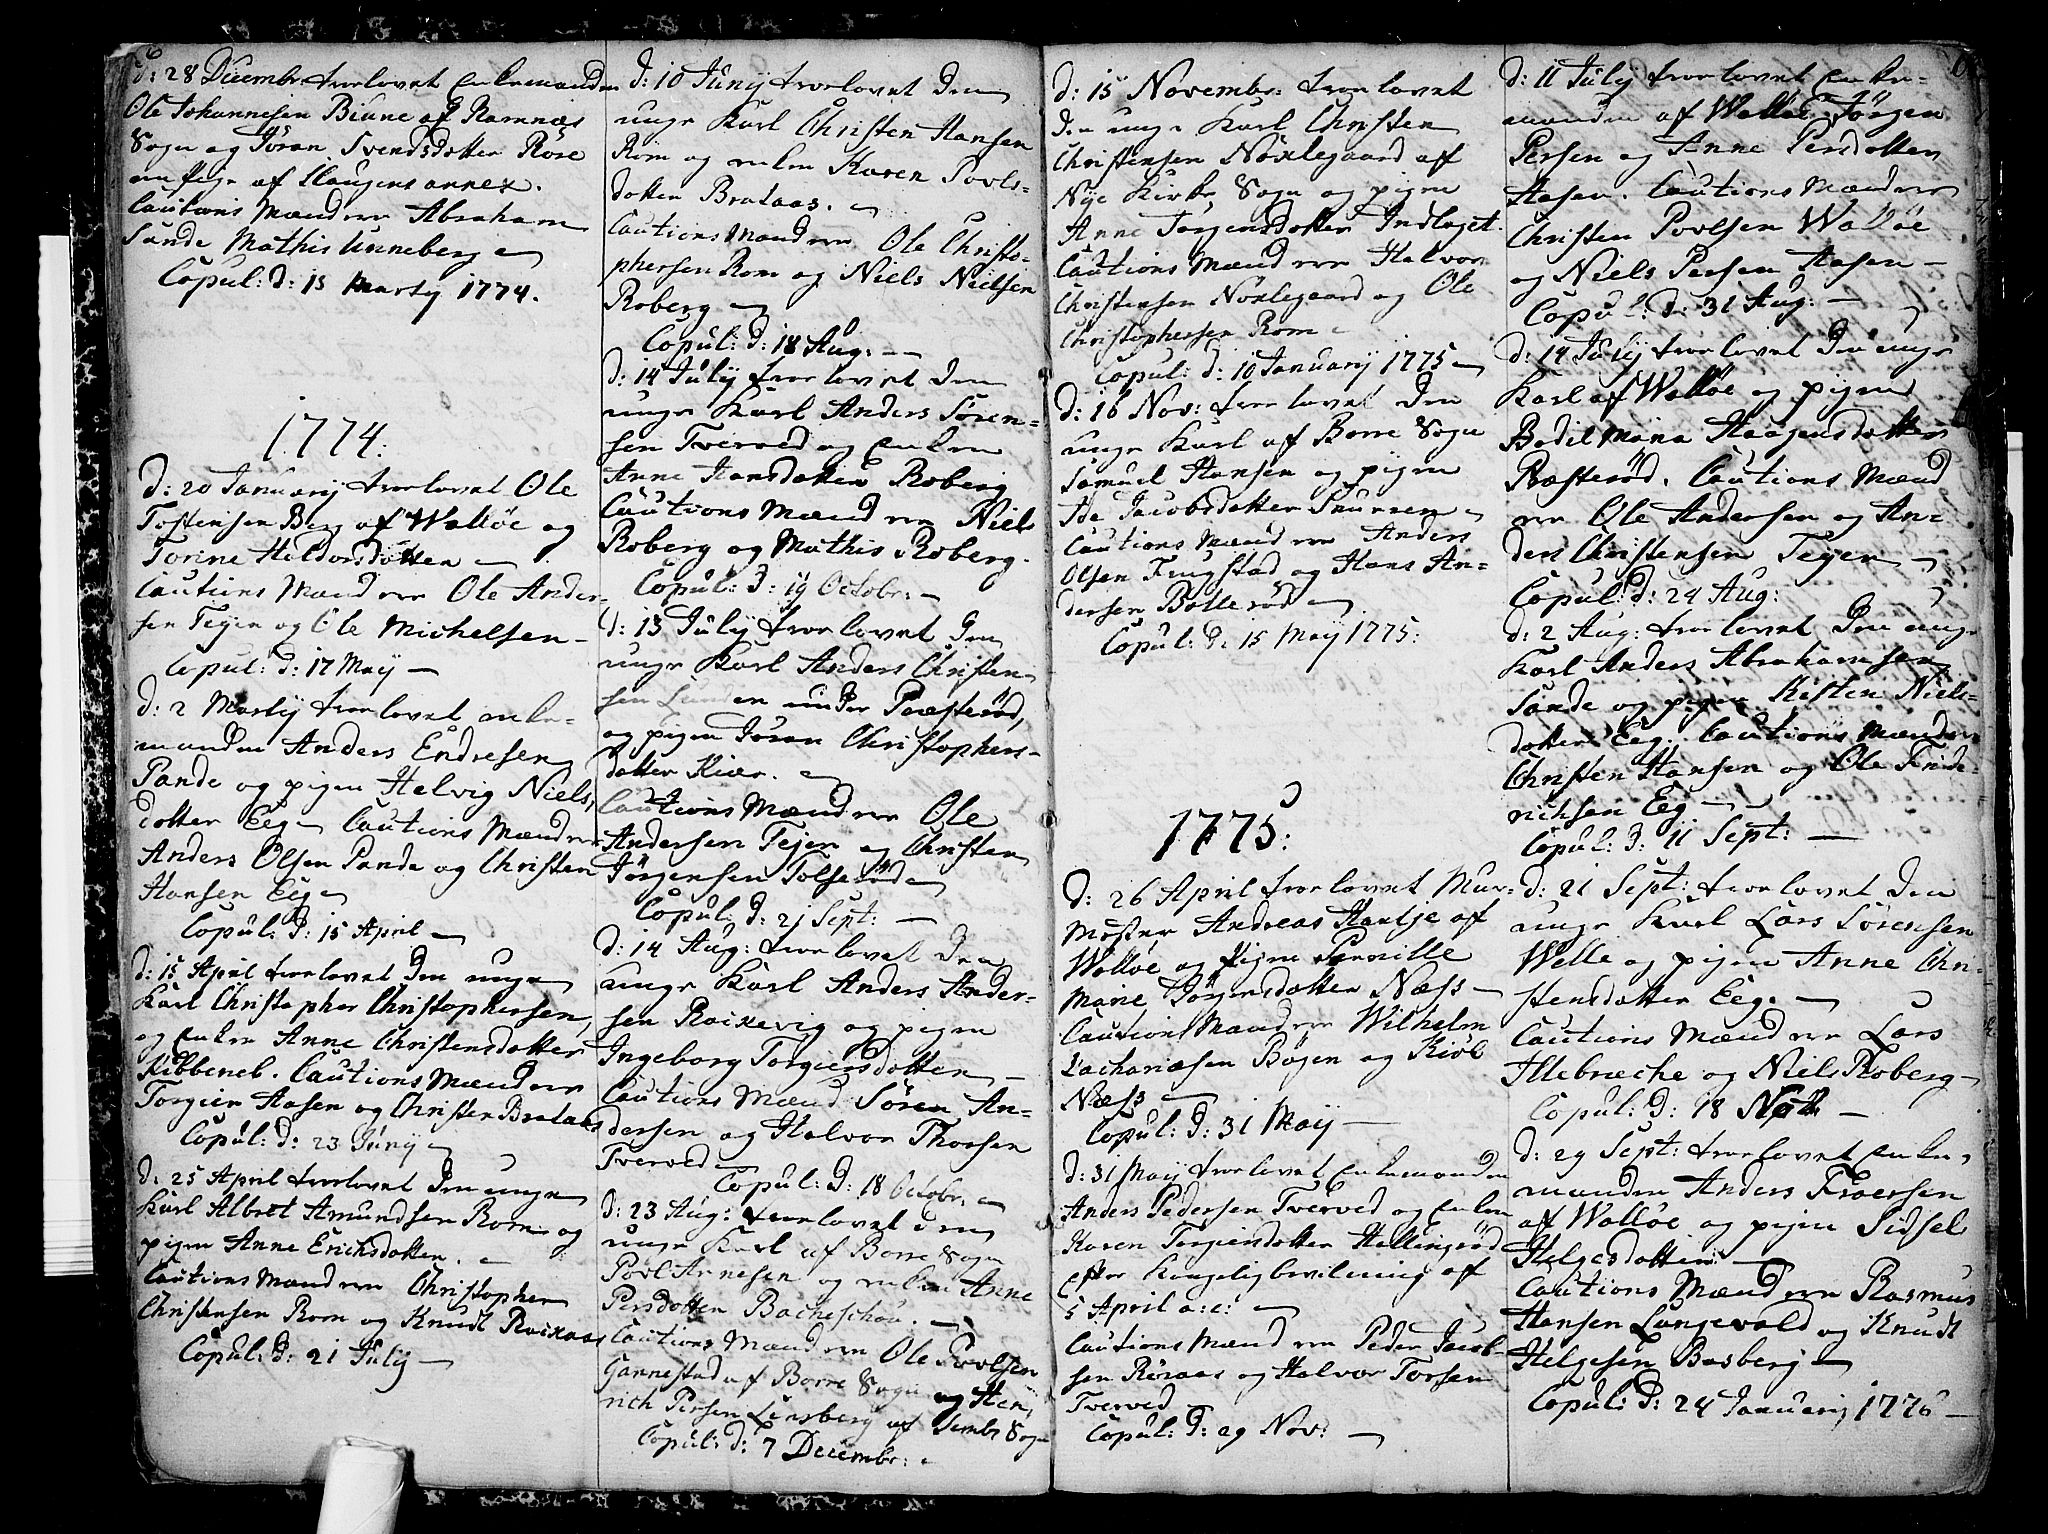 6
d: 28 Decembr: trorlovet Enkemanden
Ole Johannesen Biune af Ramnæs
Sogn og Jöran Svendsdotter Röre
en Pige af Slaugens annex.
Cautions Mænd ere Abraham
Sande Mathis Unneberg
Copul: d: 15 Martij 1774.
1774.
d: 20 Januarij trorlovet Ole
Tostensen Berg af Walløe og
Torine Heldorsdotter
Cautions Mænd ere Ole Ander-
sen Tejen og Ole Michelsen
Copul: d: 17 Maij
d: 2 Martij trorlovet enke-
manden Anders Endresen
Pande og pigen Helvig Niels
dotter Eeg Cautions Mænd ere
Anders Olsen Pande og Christen
Hansen Eeg
Copul: d: 15 April
d: 15 April trorlovet den unge
Karl Christopher Christophersen,
og Enken Anne Christensdotter
Ribbenel. Cautions Mænd ere
Torgier Aasen og Christen Brataas
Copul: d: 23 Junij
d: 25 April trorlovet den unge
Karl Albret Amundsen Rom og
pigen Anne Erichsdotter.
Cautions Mænd ere Christopher
Christensen Rom og Knudt Raixaas
Copul: d: 21 Julij
d: 10 Junij trorlovet den
unge Karl Christen Hansen
Rom og enken Karen Povls-
dotter Brataas.
Cautions Mænd ere Ole Christo-
phersen Rom og Niels Nielsen
Roberg
Copul: d: 18 Aug:
d: 14 Julij trorlovet den
unge Karl Anders Sören-
sen Tverved og Enken
Anne Hansdotter Roberg
Cautions Mænd ere Niels
Roberg og Mathis Roberg.
Copul: d: 19 Octobr:
d: 13 Julij trorlovet den
unge Karl Anders Christen-
sen Lunden under Præsteröd,
og pigen Jöran Christophers-
dotter Kiær.
Cautions Mænd ere Ole
Andersen Tejen og Christen
Jörgensen Tolseröd
Copul: d: 21 Sept:
d: 14 Aug: trorlovet den
unge Karl Anders Ander-
sen Raixevig og pigen
Ingeborg Torgiersdotter
Cautions Mænd Sören An-
dersen og Halvor Thorsen
Tverved
Copul: d: 18 Octobr:
d: 23 Aug: trorlovet den
unge Karl af Borre Sogn
Povl Arnesen og enken Anne
Persdotter Bacheschou.
Cautions Mænd ere Ole Povlsen
Gannestad af Borre Sogn og Hen
rich Persen Linsberg af Sembs Sogn
Copul: d: 7 Decembr:
d: 15 Novembr: trorlovet
den unge Karl Christen
Christensen Nöxlegaard aff
Nye Kirke Sogn og pigen
Anne Törgensdotter Indlaget.
Cautions Mænd ere Halvor
Christensen Noxlegaard og Ole
Christophersen Rom
Copul: d: 10 Januarij 1775
d: 16 Nov: trorlovet den
unge Karl af Borre Sogn
Samuel Hansen og pigen
Ide Jacobsdotter Snursen
Cautions Mænd ere Anders
Olsen Frugstad og Hans An-
dersen Bolleröd
Copul: d: 15 Maij 1775:
1775:
d: 26 April trorlovet Mur-
Mester Andreas Hantje aff
Walløe og Pigen Pernille
Marie Jörgensdotter Næss
Cautions Mænd ere Wilhelm
Zachariæsen Bögen og Kiöl
Næss
Copul: d: 31 Maij
d: 31 Maij trorlovet enkemanden
Anders Pedersen Tverved og Enken
Karen Torgiersdotter Hellingröd
efter Kongelig bevilning af
5 April a: c:
Cautions Mænd ere Peder Jacob-
sen Röraas og Halvor Torsen
Tverved
Copul: d: 29 Nov:
d: 11 Julij trorlovet Enke-
manden af Walløe Jörgen
Persen og Anne Persdotter
Aasen. Cautions Mænd ere
Christen Povlsen Walløe
og Niels Persen Aasen
Copul: d: 31 Aug:
d: 14 Julij trorlovet den unge
Karl af Walløe og pigen
Bodil Maria Haagensdotter
Præsteröd. Cautions Mænd
ere Ole Andersen og An-
ders Christensen Tejen
Copul: d: 24 Aug:
d: 2 Aug: trorlovet den unge
Karl Anders Abrahamsen
Sande og pigen Kisten Niels-
dotter Eeg. Cautions Mænd ere
Christen Hansen og Ole Fride-
richsen Eeg
Copul: d: 11 Sept:
d: 21 Sept: trorlovet den
unge Karl Lars Sörensen
Welle og pigen Anne Chri-
stensdotter Eeg.
Cautions Mænd ere Lars
Illebræche og Niels Roberg
Copul: d: 18 Nov:
d: 29 Sept: trorlovet Enke,
manden Anders Troersen
af Walløe og pigen Sidsel
Helgesdotter
Cautions Mænd ere Rasmus
Hansen Langevald og Knudt
Helgesen Basberg
Copul: d: 24 Januarij 1776